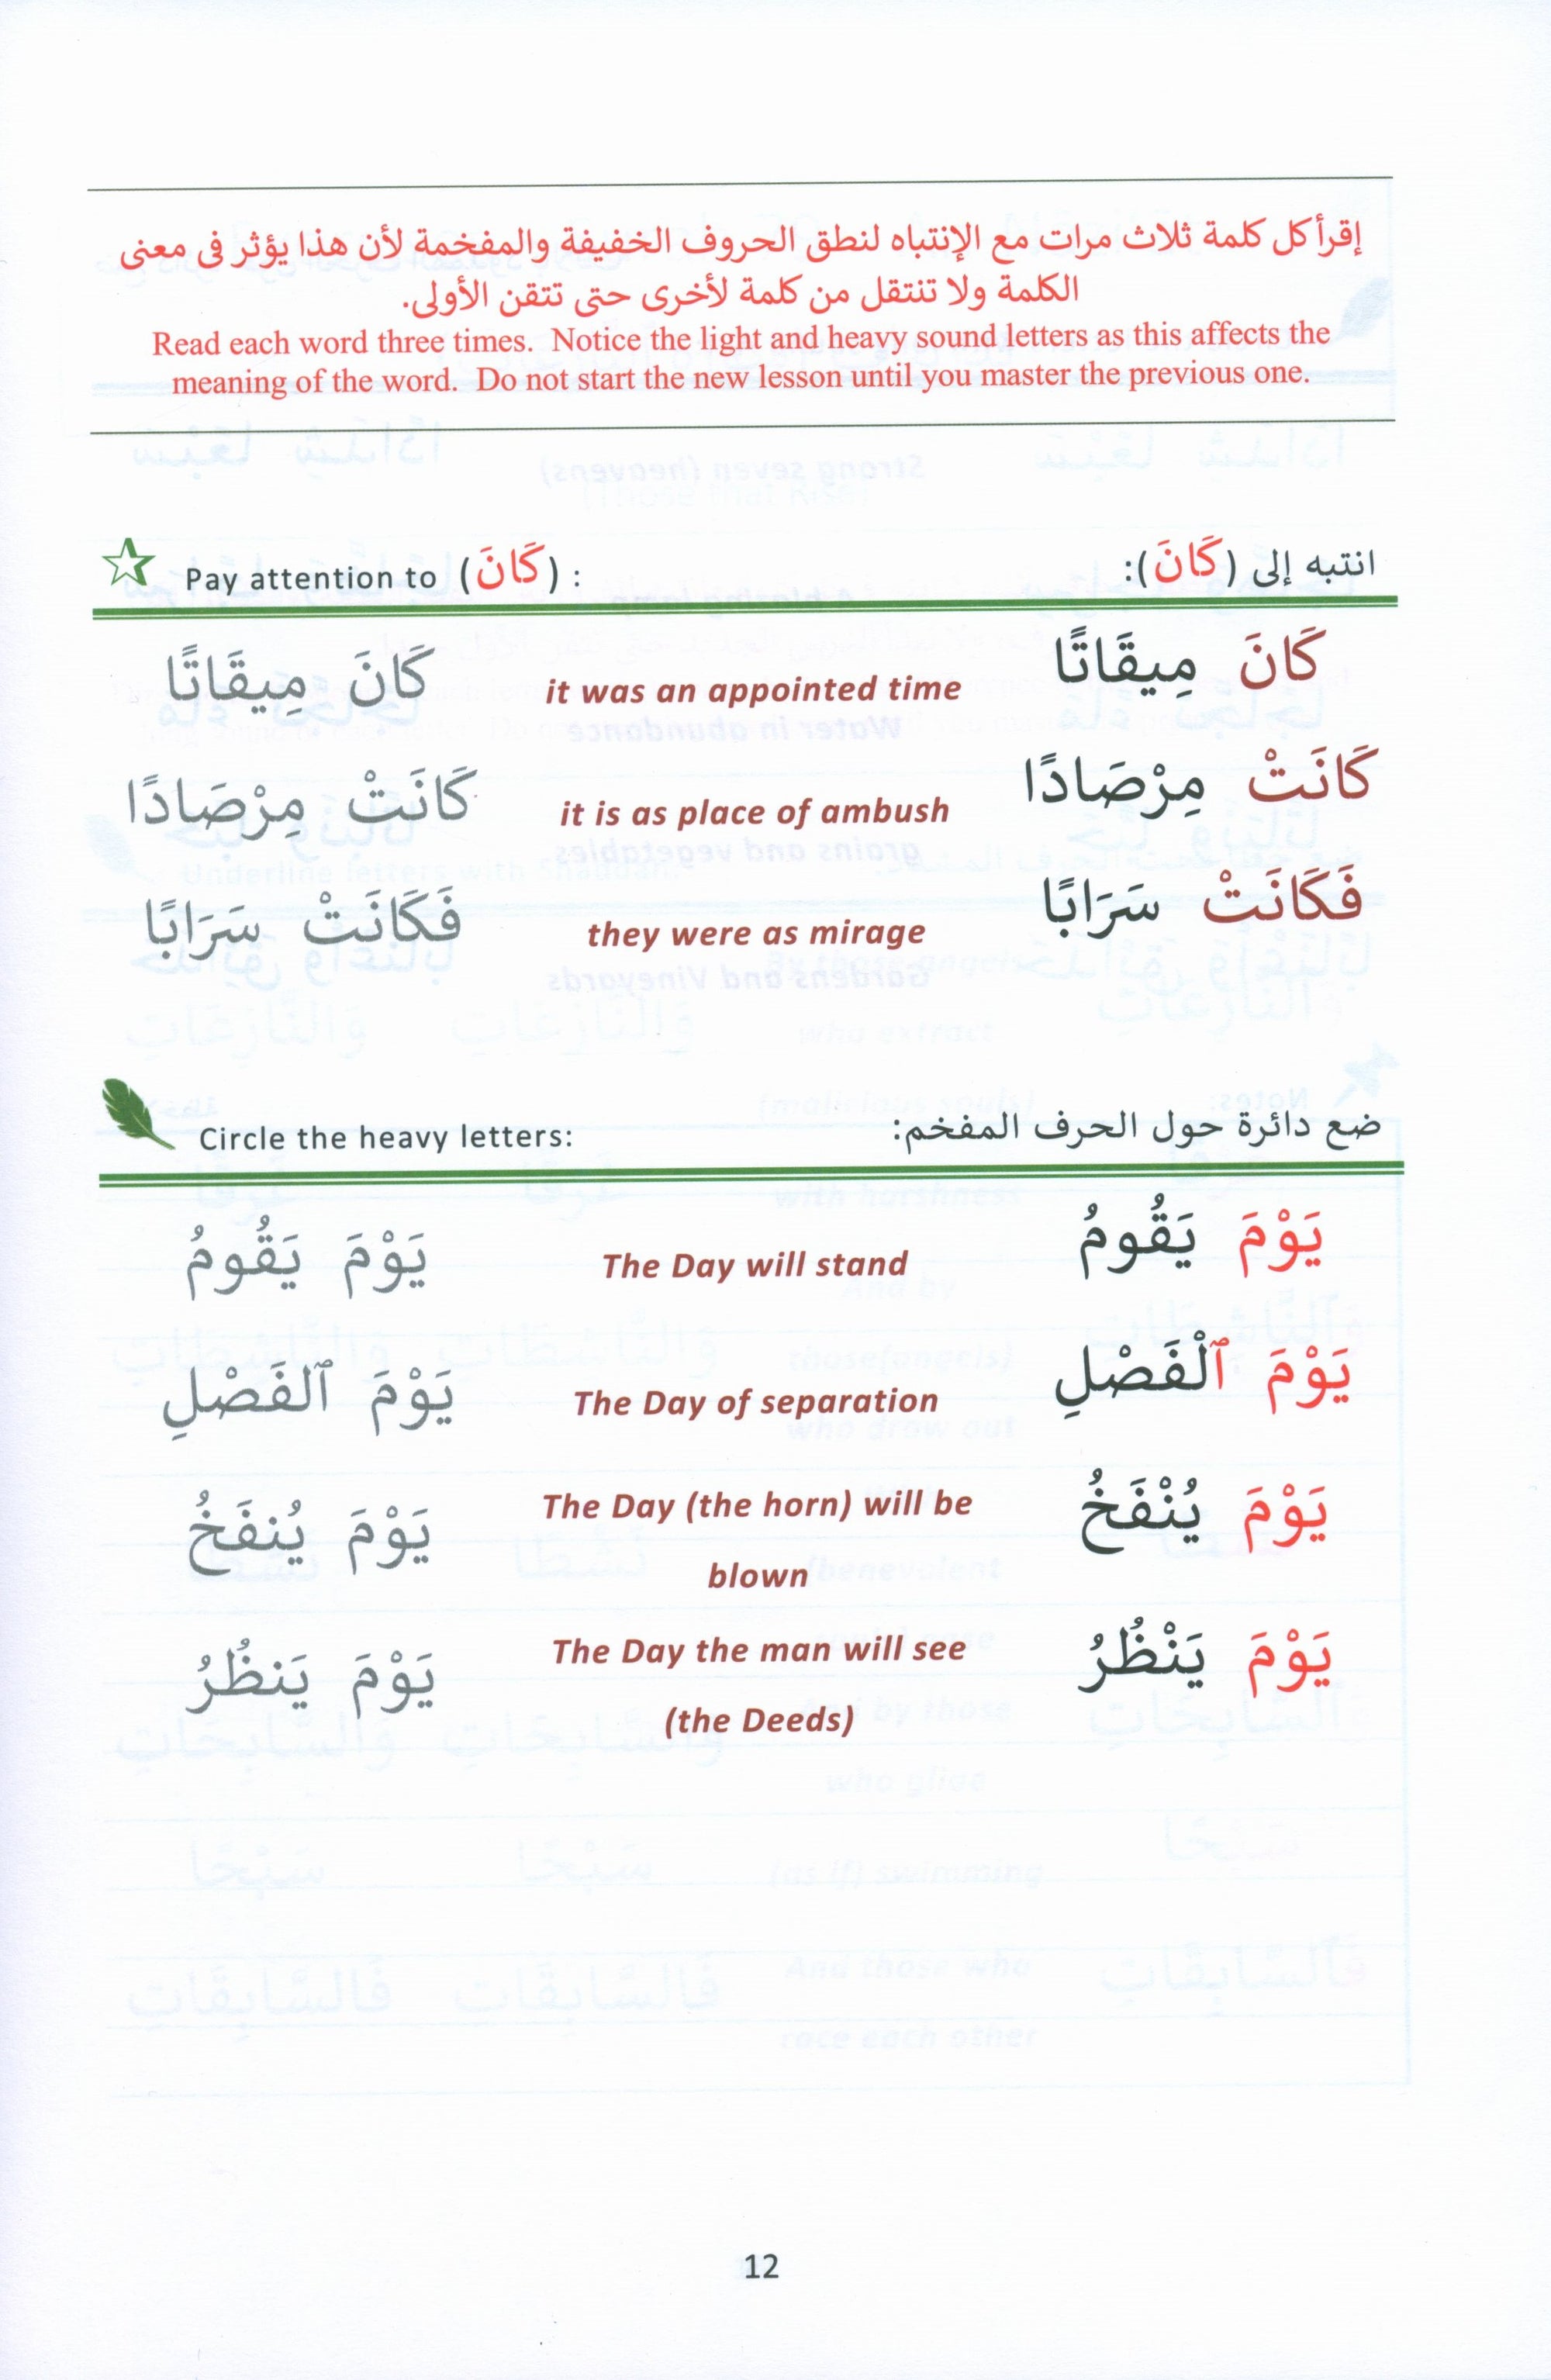 إقرأ كل كلمة ثلاث مرات مع الإنتباه لنطق الحروف الخفيفة والمفخمة لأن هذا يؤثر فى معنى
الكلمة ولا تنتقل من كلمة لأخرى حتى تتقن الأولى.
Read each word three times. Notice the light and heavy sound letters as this affects the
meaning of the word. Do not start the new lesson until you master the previous one.
Pay attention to (كَانَ) : انتبه إلى (كَانَ):
كَانَ مِيقَاتًا it was an appointed time كَانَ مِيقَاتًا
كَانَتْ مِرْصَادًا it is as place of ambush كَانَتْ مِرْصَادًا
فَكَانَتْ سَرَابًا they were as mirage فَكَانَتْ سَرَابًا
Circle the heavy letters: ضع دائرة حول الحرف المفخم:
يَوْمَ يَقُومُ The Day will stand يَوْمَ يَقُومُ
يَوْمَ ٱلْفَصْلِ The Day of separation يَوْمَ ٱلفَصْلِ
يَوْمَ يُنْفَخُ The Day (the horn) will be يَوْمَ يُنفَخُ
blown
يَوْمَ يَنْظُرُ The Day the man will see يَوْمَ يَنظُرُ
(the Deeds)
12